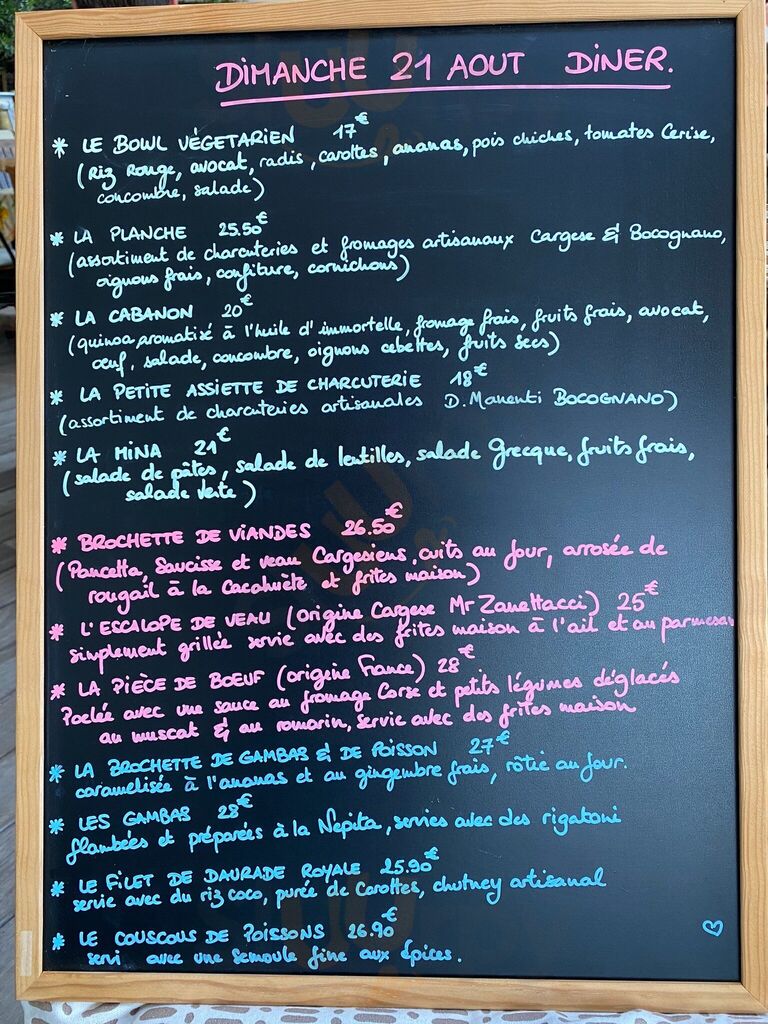 DIMANCHE 21 AOUT DINER.
* LE BOWL VÉGETARIEN 17€
(Riz Rouge, avocat, radis, carottes, ananas, pois chiches, tomates Cerise,
concombre, salade)
* LA PLANCHE 25.50€
(assortiment de charcuteries et fromages artisanaux Cargese & Bocognano,
oignons frais, confiture, cornichons)
* LA CABANON 20€
(quinoa aromatisé à l'huile d'immortelle, fromage frais, fruits frais, avocat,
oeuf, salade, concombre, oignons cebettes, fruits secs)
* LA PETITE ASSIETTE DE CHARCUTERIE 18€
(assortiment de charcuteries artisanales D. Manenti BOCOGNANO)
* LA MINA 21€
(salade de pâtes, salade de lentilles, salade Grecque, fruits frais,
salade verte)
* BROCHETTE DE VIANDES 26.50€
(Pancetta, Saucisse et veau Cargesiens, cuits au four, arrosée de
rougail à la Cacahuète et frites maison)
* L'ESCALOPE DE VEAU (origine Cargese Mr Zanettacci) 25€
simplement grillée servie avec des frites maison à l'ail et au parmesan
* LA PIÈCE DE BOEUF (origine France) 28€
Poelée avec une sauce au fromage Corse et petits légumes déglacés
au muscat & au romarin, servie avec des frites maison
* LA BROCHETTE DE GAMBAS & DE POISSON 27€
caramelisée à l'ananas et au gingembre frais, rôtie au four.
* LES GAMBAS 28€
flambées et préparées à la Nepita, servies avec des rigatoni
* LE FILET DE DAURADE ROYALE 25.90€
servie avec du riz coco, purée de Carottes, chutney artisanal
* LE COUSCOUS DE POISSONS 26.90€
servi avec une semoule fine aux épices.